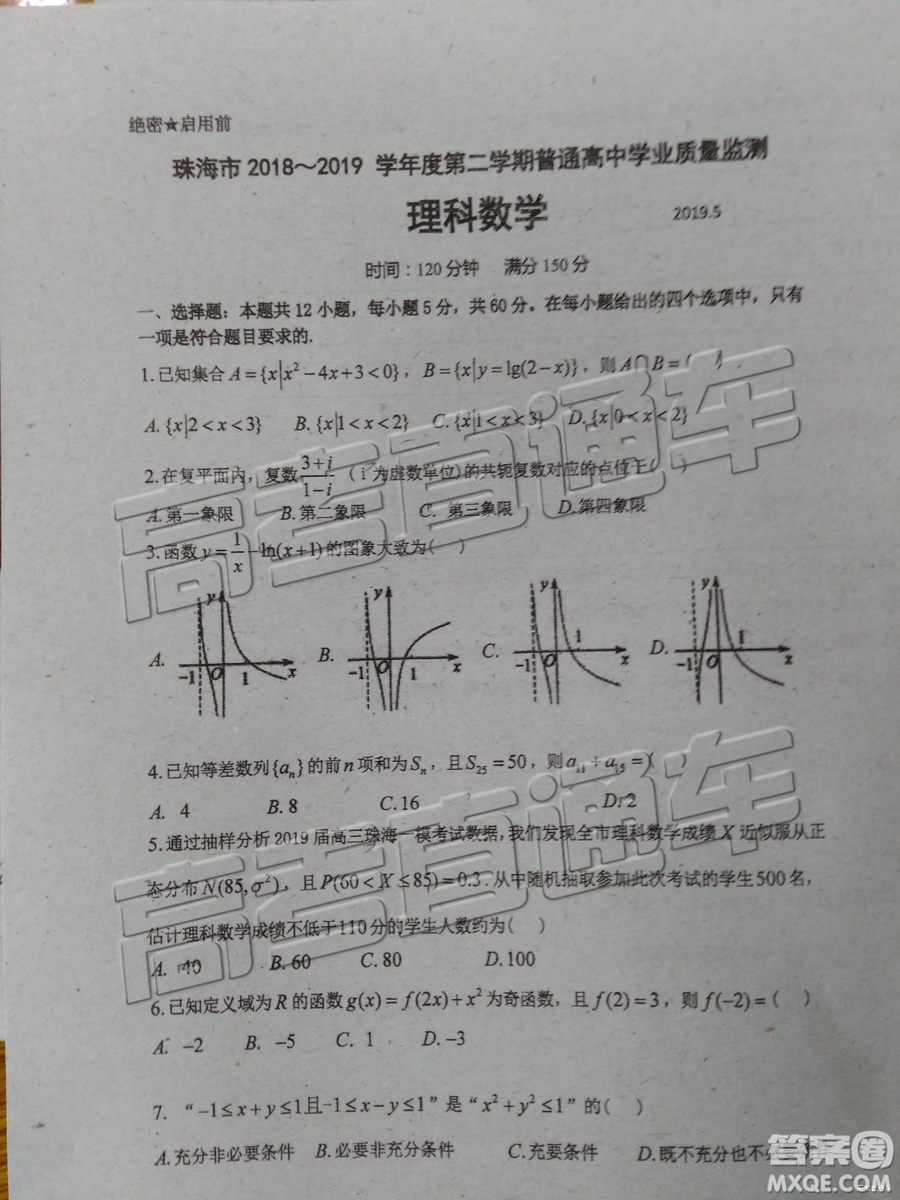 绝密★启用前
珠海市2018～2019 学年度第二学期普通高中学业质量监测
理科数学 2019.5
时间：120分钟 满分150分
一、选择题：本题共12小题，每小题5分，共60分。在每小题给出的四个选项中，只有
一项是符合题目要求的.
1.已知集合A={x|x²−4x+3<0}，B={x|y=lg(2−x)}，则A∩B=( )
A.{x|2<x<3} B.{x|1<x<2} C.{x|1<x<3} D.{x|0<x<2}
2.在复平面内，复数(3+i)/(1−i)（i为虚数单位)的共轭复数对应的点位于( )
A.第一象限 B.第二象限 C. 第三象限 D.第四象限
3.函数y=1/x−ln(x+1)的图象大致为( )
A. y −1 O 1 x B. y −1 O 1 x C. y −1 O 1 x D. y −1 O 1 x
4.已知等差数列{aₙ}的前n项和为Sₙ，且S₂₅=50，则a₁₁+a₁₅=( )
A. 4 B.8 C.16 D.2
5.通过抽样分析2019届高三珠海一模考试数据，我们发现全市理科数学成绩X近似服从正
态分布N(85,σ²)，且P(60<X≤85)=0.3.从中随机抽取参加此次考试的学生500名，
估计理科数学成绩不低于110分的学生人数约为( )
A. 40 B.60 C.80 D.100
6.已知定义域为R的函数g(x)=f(2x)+x²为奇函数，且f(2)=3，则f(−2)=( )
A. −2 B. −5 C. 1 D.−3
7. “−1≤x+y≤1且−1≤x−y≤1”是“x²+y²≤1”的( )
A.充分非必要条件 B.必要非充分条件 C.充要条件 D.既不充分也不必
高考直通车
高考直通车
答案圈
MXQE.COM